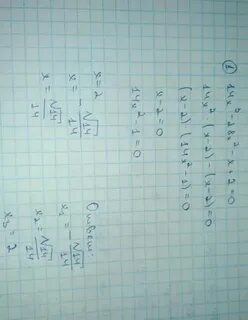 ①
14x³-28x²-x+2=0
14x²(x-2)-(x-2)=0
(x-2)(14x²-1)=0
x-2=0
14x²-1=0
x=2
x=-√14/14
x=√14/14
Ответ:
x₁=-√14/14
x₂=√14/14
x₃=2